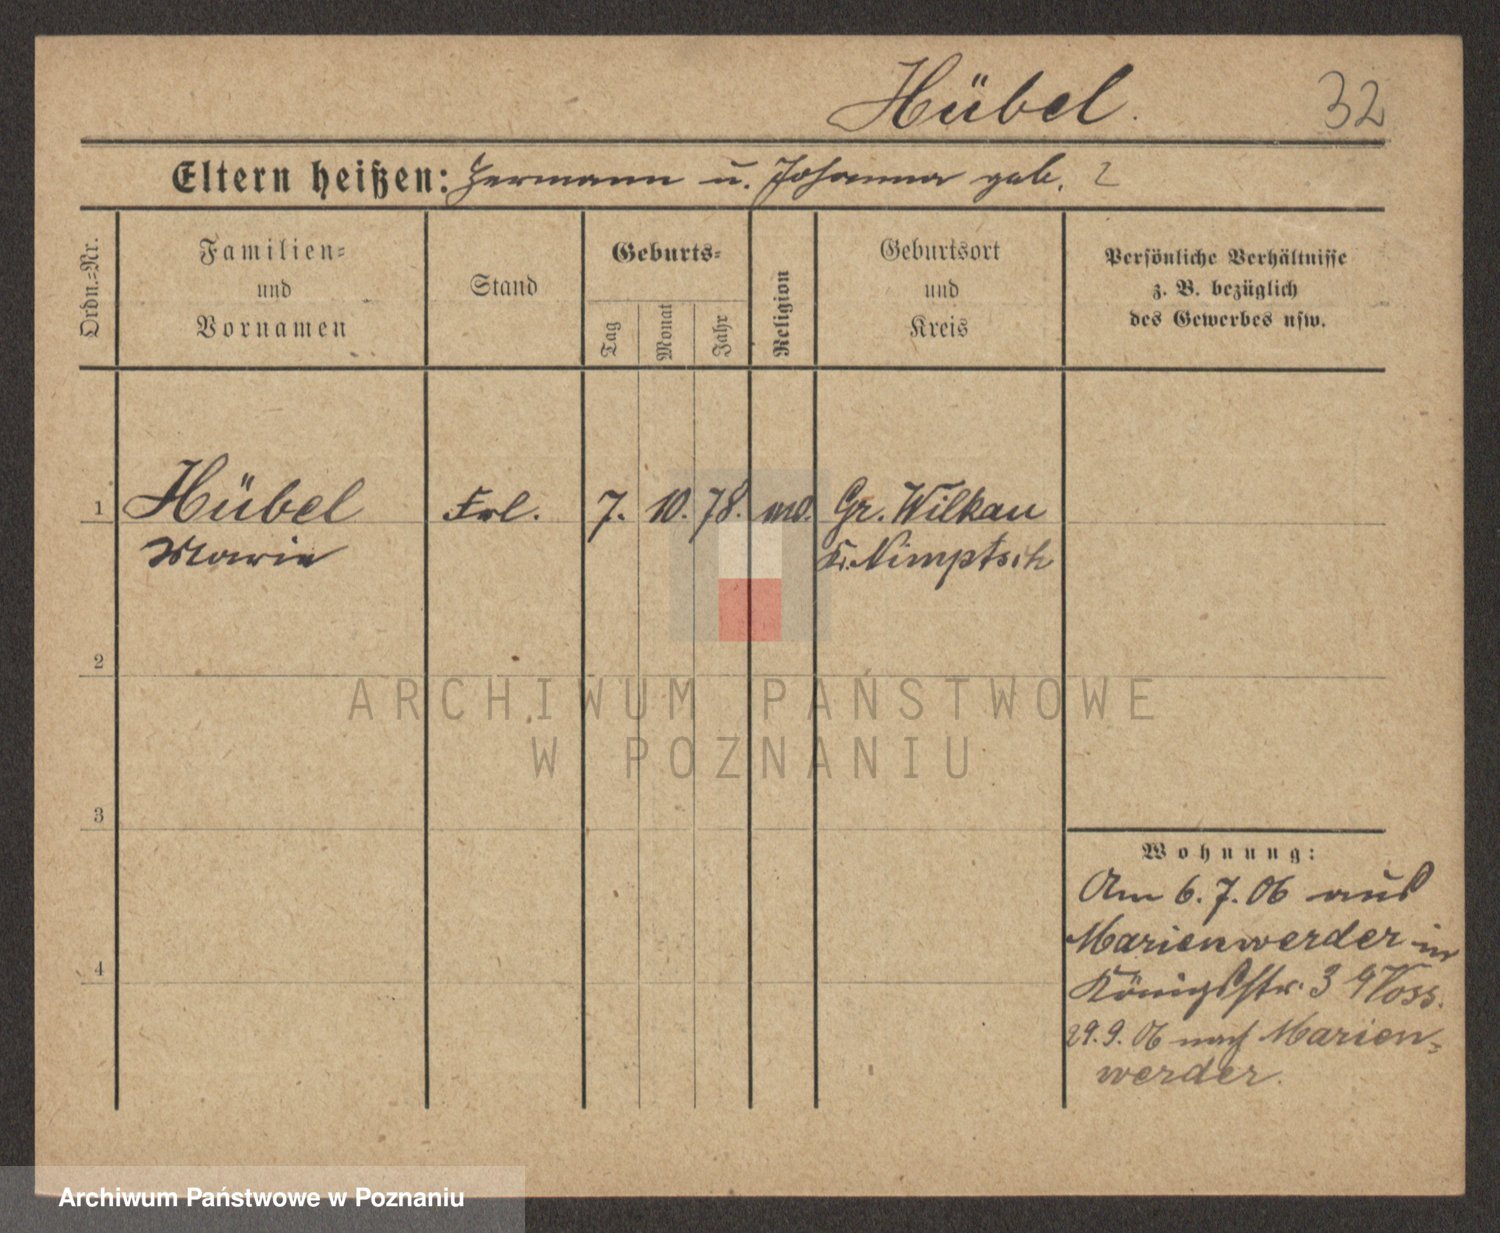 Hübel.
32
Eltern heißen: Hermann u. Johanna geb. ?
Ordn.-Nr.
Familien-
und
Vornamen
Stand
Geburts-
Tag
Monat
Jahr
Religion
Geburtsort
und
Kreis
Persönliche Verhältnisse
z. B. bezüglich
des Gewerbes usw.
1 Hübel Frl. 7. 10. 78. Gr. Wilkau
Marie Kr. Nimptsch
2
ARCHIWUM PAŃSTWOWE
W POZNANIU
3
Wohnung:
Am 6.7.06 aus
Marienwerder in
4
Königsstr. 3 Voss.
29.9.06 nach Marien-
werder.
Archiwum Państwowe w Poznaniu